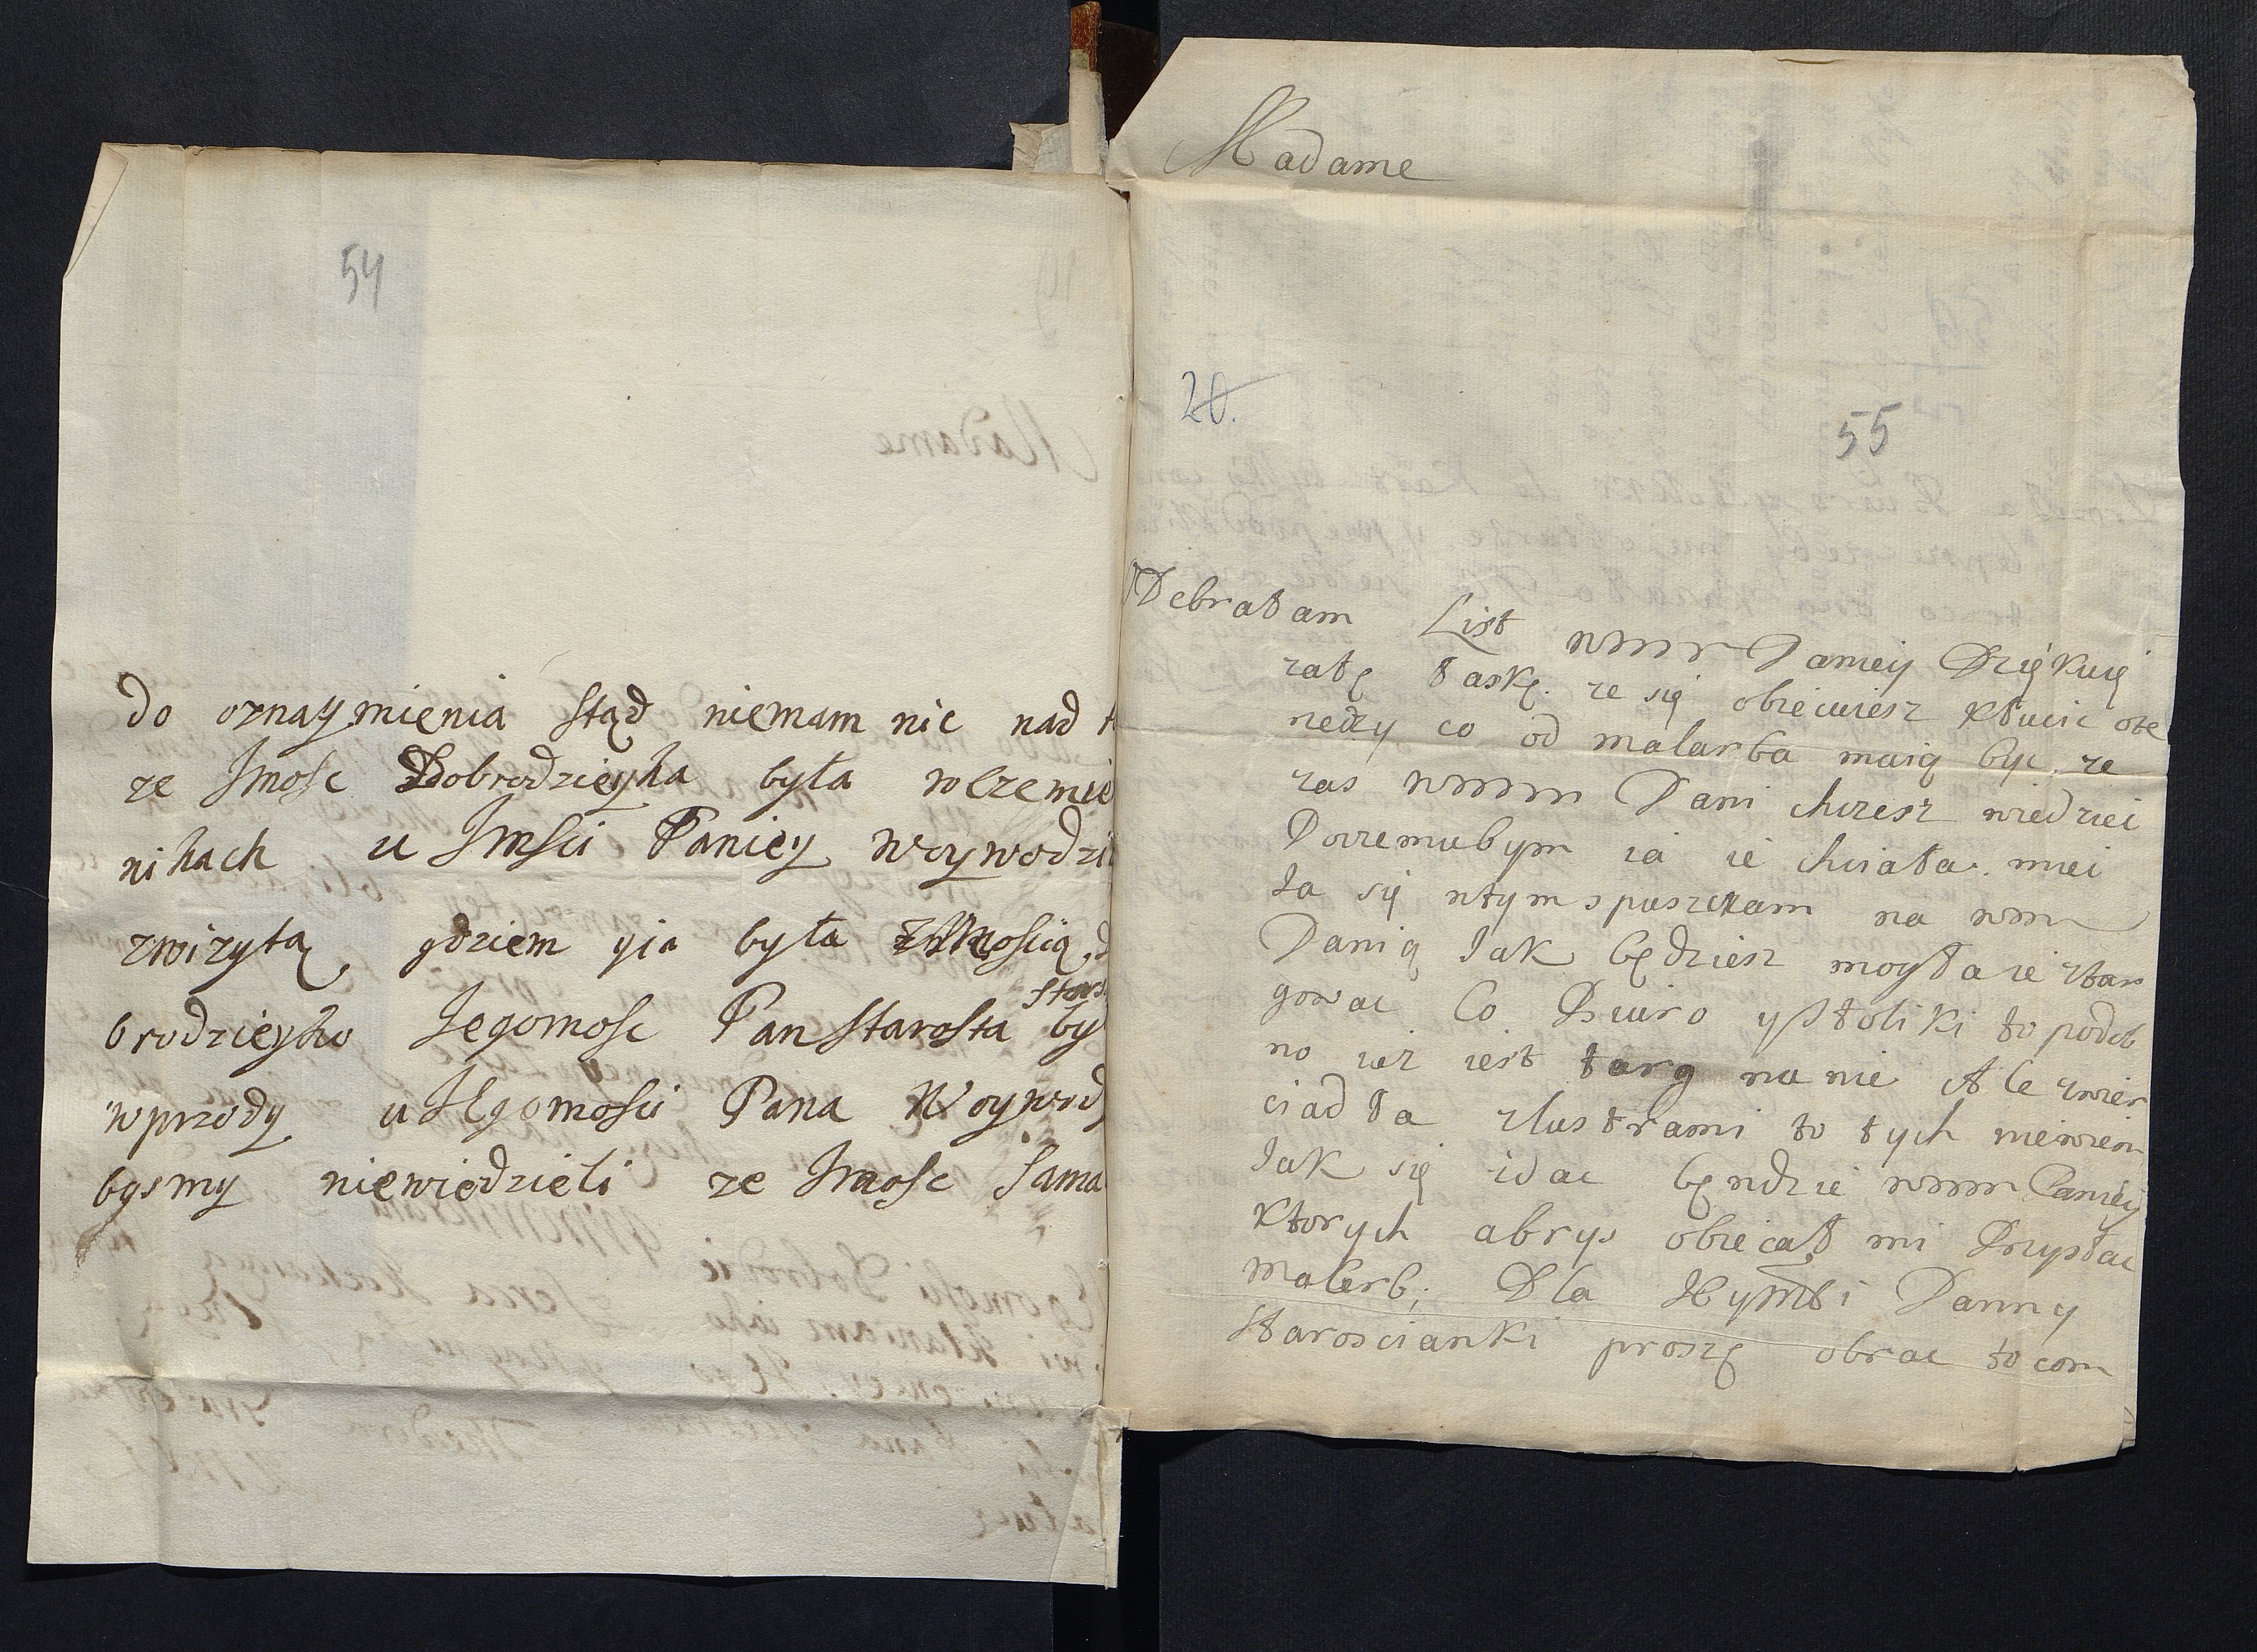 54
do oznaymienia stąd niemam nic nad t
ze Jmośc Dobrodzieyka była wCzemie
nikach u Jmści Paniey Woywodzi
zwizytą, gdziem yia była zJMością, d
Stars
brodzieyko Jegomośc Pan Starosta by
wprzody u JEgomości Pana Woywod
bysmy niewiedzieli ze Jmośc sama
Madame
20.
55
Odebrałam List wmm Paniey Dziękuię
zatę łaskę. ze się obiecuiesz kłucic ote
meday co od malarba maią byc. ze
zas wmm Pani chcesz wiedziei
Poczemubym ia ie chciała. miei
Ja się wtym spuszczam na wm
Panią Jak będziesz mogła ie ztar
gowac Co Biuro ystoliki to podob
no iuz iest targ nanie Ale zwier
ciadła zlustrami to tych niewiem
Jak się zdac będzie wmm Paniey
ktorych abrys obiecał mi Przysłac
malerb; Dla Jeymści Panny
Staroscianki proszę obrac tocom